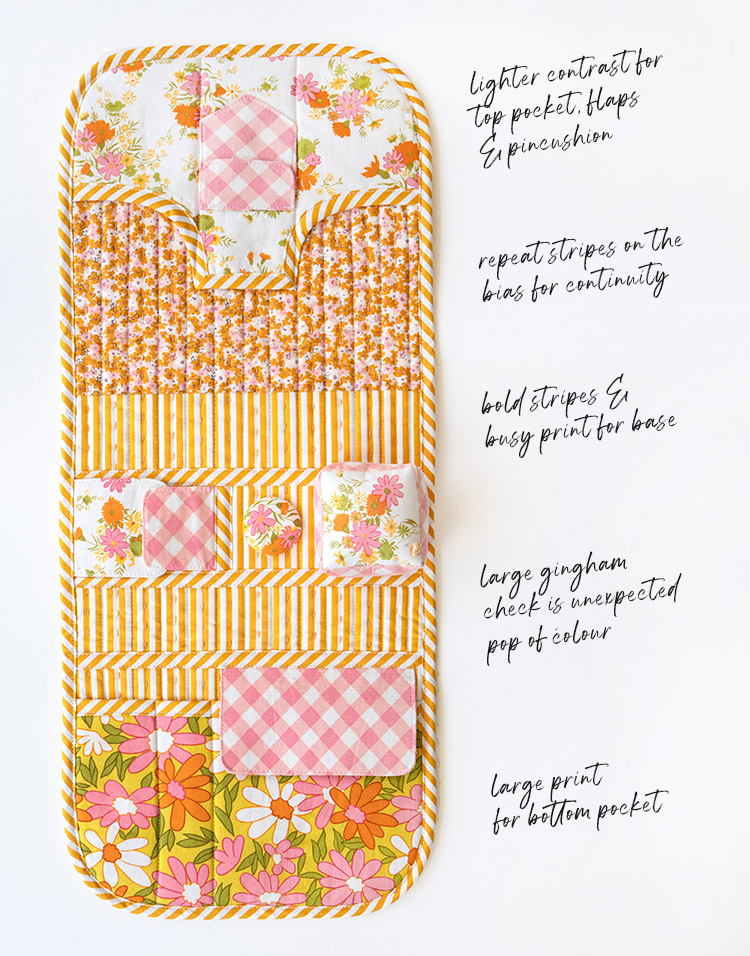 lighter contrast for
top pocket, flaps
& pincushion
repeat stripes on the
bias for continuity
bold stripes &
busy print for base
large gingham
check is unexpected
pop of colour
large print
for bottom pocket